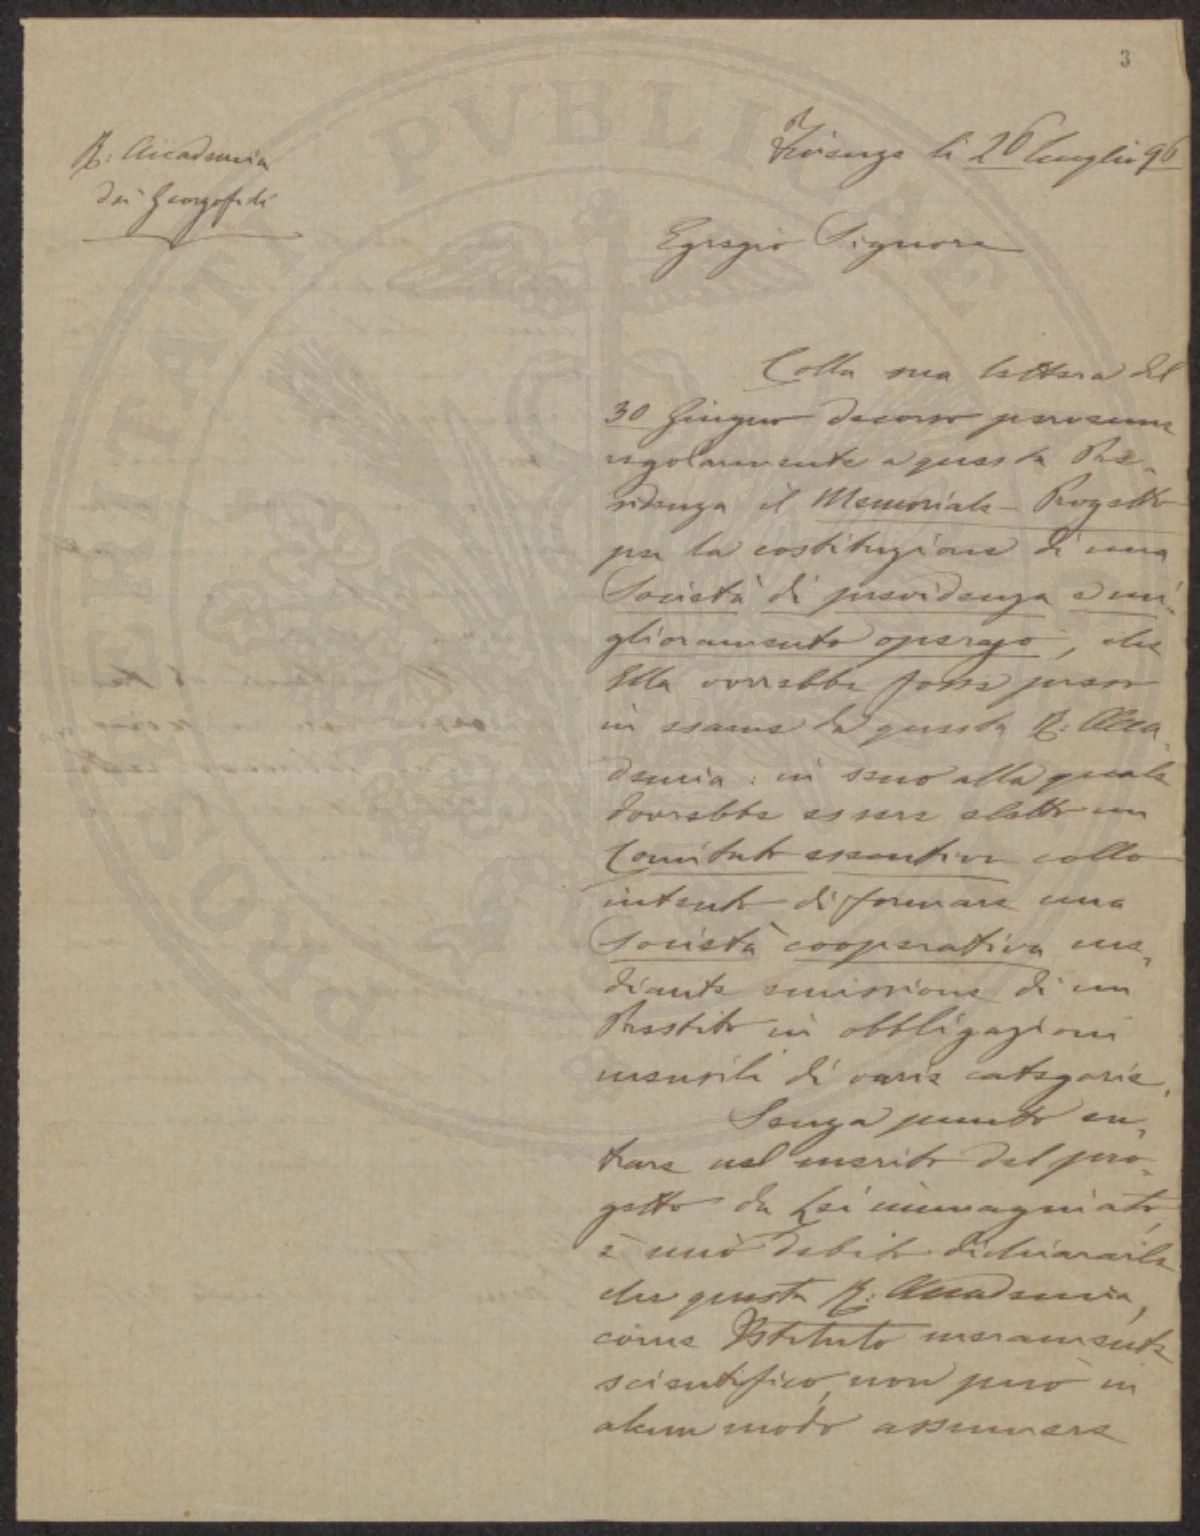 3
R: Accademia
dei Georgofili
Firenze li 26 luglio 96
Egregio Signore
Colla sua lettera del
30 Giugno decorso pervenne
regolarmente a questa Pre-
sidenza il Memoriale - Progetto
per la costituzione di una
Società di previdenza e mi-
glioramento operajo, che
Ella vorrebbe fosse preso
in esame da questa R: Acca-
demia: in seno alla quale
dovrebbe essere eletto un
Comitato esecutivo collo
intento di formare una
Società cooperativa me-
diante emissione di un
Prestito in obbligazioni
mensili di varie categorie.
Senza punto en-
trare nel merito del pro-
getto da Lei immaginato,
è mio debito dichiararle
che questa R: Accademia,
come Istituto meramente
scientifico, non può in
alcun modo assumere
PVBLICAE
PROSPERITATI